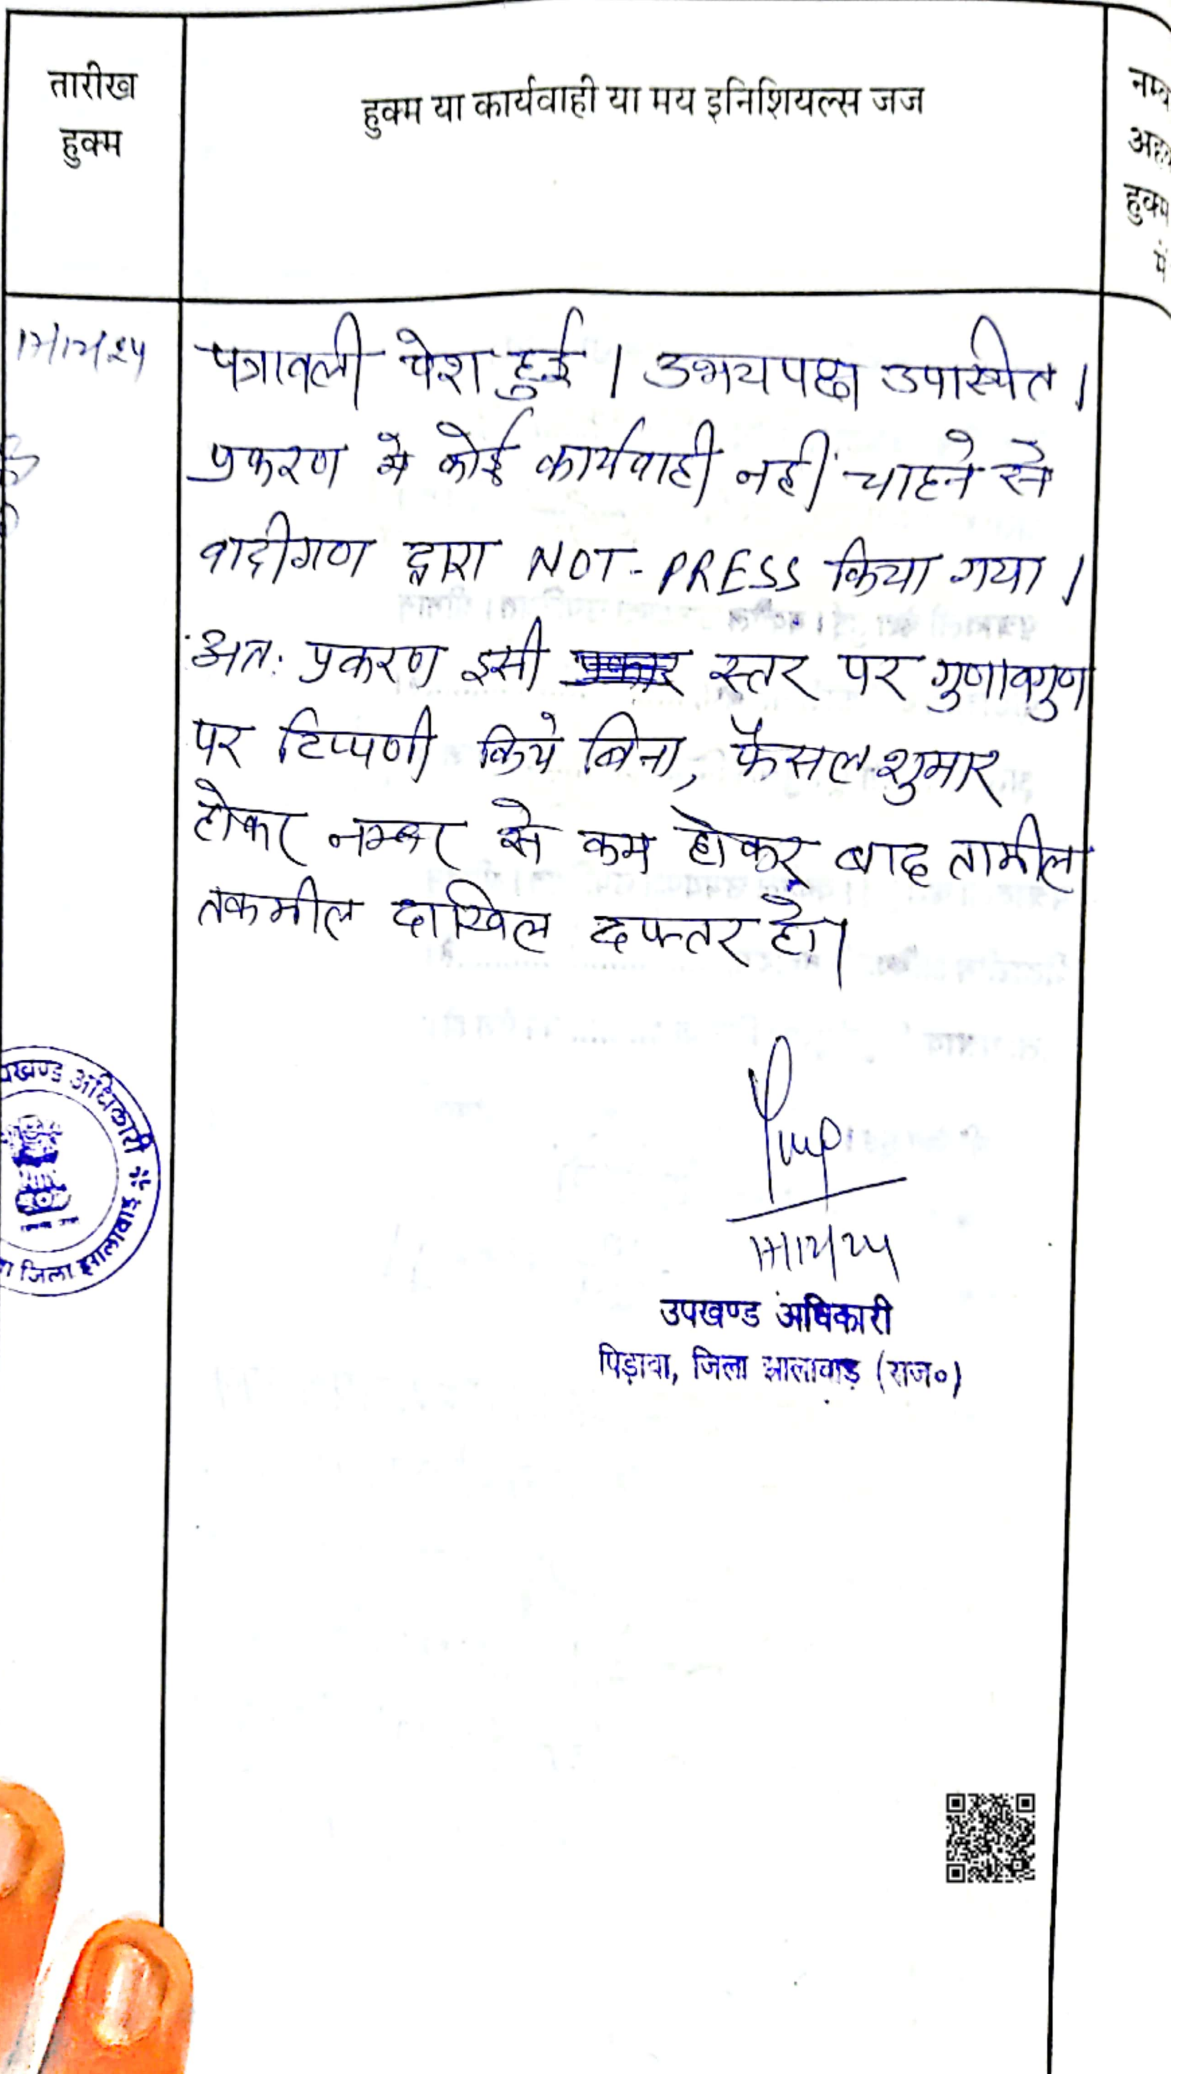 तारीख
हुक्म
हुक्म या कार्यवाही या मय इनिशियल्स जज
हुक्म
में
17/12/24
पत्रावली पेश हुई । उभयपक्ष उपस्थित ।
प्रकरण में कोई कार्यवाही नहीं चाहने से
वादीगण द्वारा NOT-PRESS किया गया ।
अतः प्रकरण इसी स्तर पर गुणावगुण
पर टिप्पणी किये बिना, फैसल शुमार
होकर नम्बर से कम होकर बाद तामील
तकमील दाखिल दफ्तर हो।
अधिकारी
जिला झालावाड़
17/12/24
उपखण्ड अधिकारी
पिड़ावा, जिला झालावाड़ (राज०)